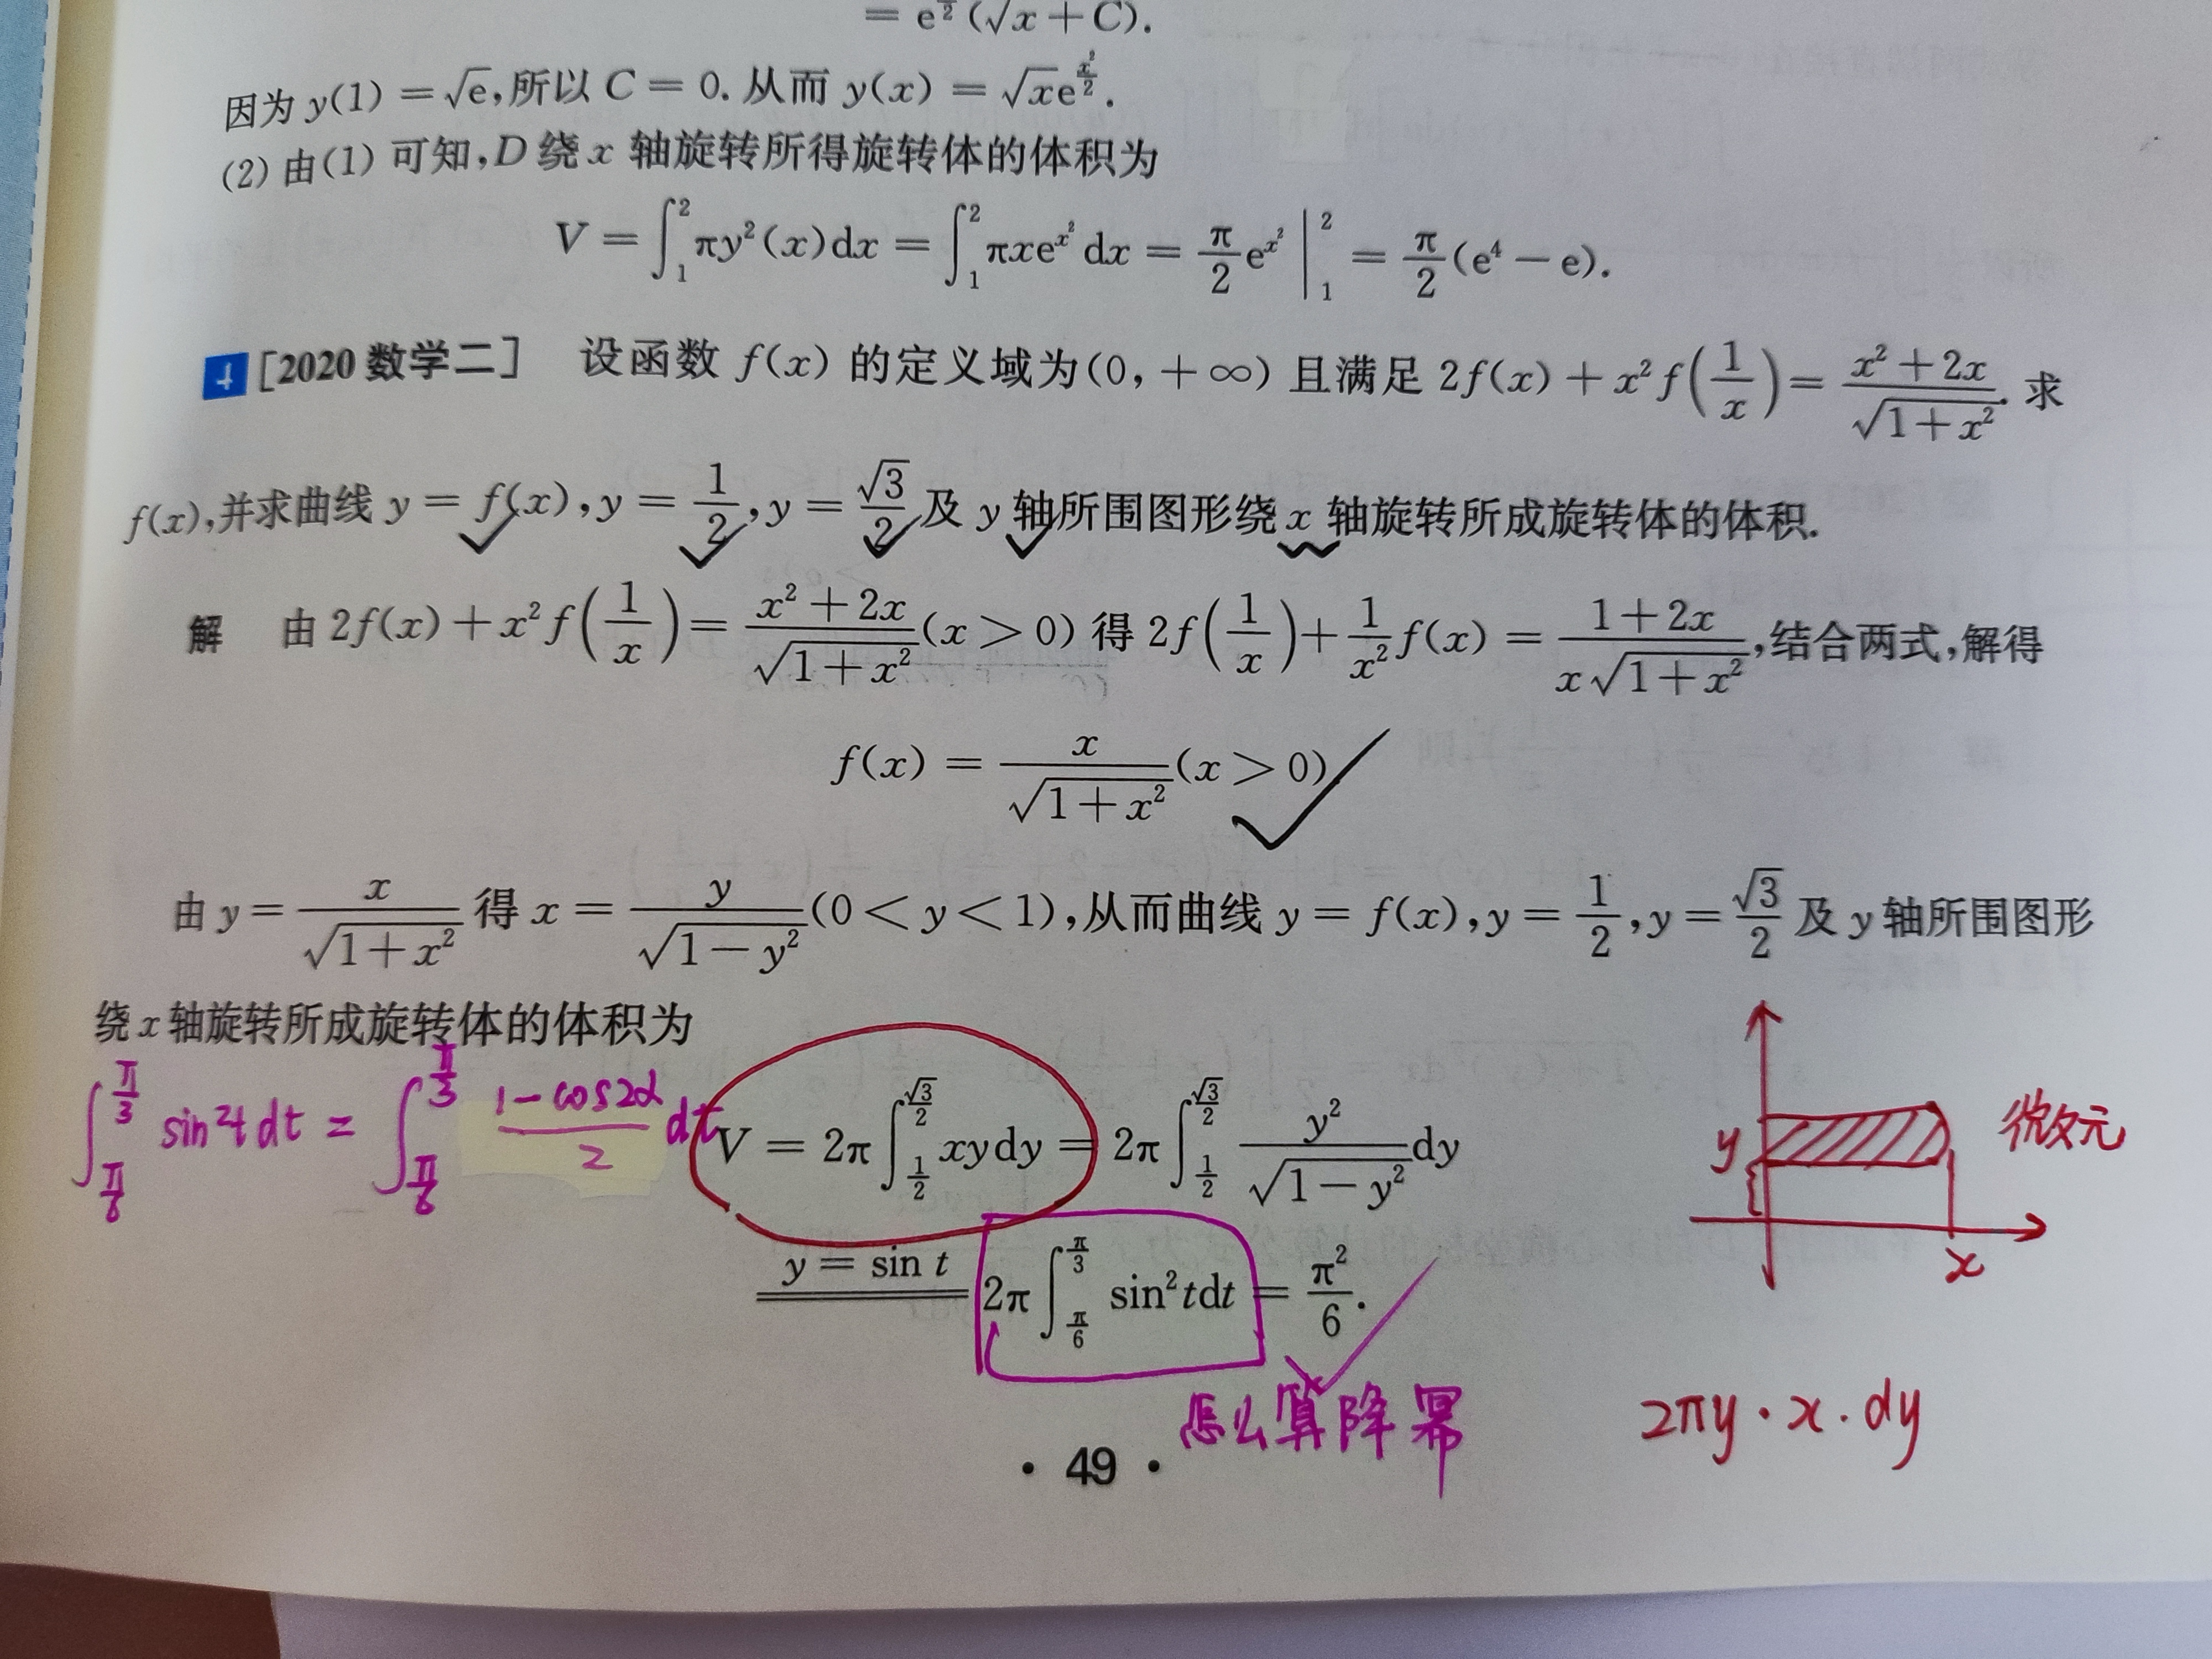 = e^{\frac{}{2}}(√x + C).
因为 y(1) = √e,所以 C = 0. 从而 y(x) = √x e^{\frac{x²}{2}}.
(2) 由(1) 可知,D 绕 x 轴旋转所得旋转体的体积为
V = ∫_1^2 πy²(x)dx = ∫_1^2 πxe^{x²}dx = \frac{π}{2}e^{x²}|_1^2 = \frac{π}{2}(e⁴ − e).
4 [2020 数学二] 设函数 f(x) 的定义域为(0, +∞) 且满足 2f(x) + x²f(\frac{1}{x}) = \frac{x² + 2x}{\sqrt{1+x²}}. 求
f(x),并求曲线 y = f(x), y = \frac{1}{2}, y = \frac{√3}{2} 及 y 轴所围图形绕 x 轴旋转所成旋转体的体积.
解 由 2f(x) + x²f(\frac{1}{x}) = \frac{x² + 2x}{\sqrt{1+x²}}(x > 0) 得 2f(\frac{1}{x}) + \frac{1}{x²}f(x) = \frac{1+2x}{x\sqrt{1+x²}},结合两式,解得
f(x) = \frac{x}{\sqrt{1+x²}}(x > 0)
由 y = \frac{x}{\sqrt{1+x²}} 得 x = \frac{y}{\sqrt{1−y²}}(0 < y < 1),从而曲线 y = f(x), y = \frac{1}{2}, y = \frac{√3}{2} 及 y 轴所围图形
绕 x 轴旋转所成旋转体的体积为
∫_{\frac{π}{6}}^{\frac{π}{3}} sin²t dt = ∫_{\frac{π}{6}}^{\frac{π}{3}} \frac{1−cos2α}{2} dt
V = 2π∫_{\frac{1}{2}}^{\frac{√3}{2}} xydy = 2π∫_{\frac{1}{2}}^{\frac{√3}{2}} \frac{y²}{\sqrt{1−y²}}dy
y 微元
x
y = sin t 2π∫_{\frac{π}{6}}^{\frac{π}{3}} sin²tdt = \frac{π²}{6}.
怎么算降幂
2πy·x·dy
· 49 ·